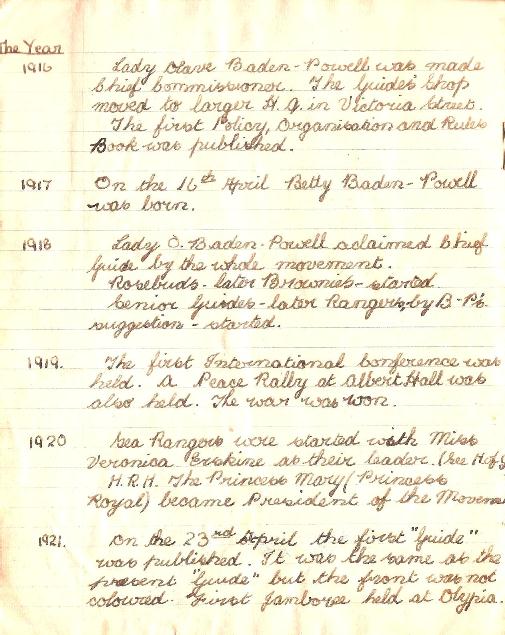 The Year
1916 Lady Olave Baden-Powell was made
Chief Commissioner. The Guides Shop
moved to larger H.Q. in Victoria Street.
The first Policy, Organisation and Rules
Book was published.
1917 On the 16th April Betty Baden-Powell
was born.
1918 Lady O. Baden-Powell aclaimed Chief
Guide by the whole movement.
Rosebuds - later Brownies - started
Senior Guides - later Rangers, by B-P's
suggestion - started.
1919. The first International Conference was
held. A Peace Rally at Albert Hall was
also held. The war was won.
1920 Sea Rangers were started with Miss
Veronica Erskine as their leader. (See H of G
H.R.H. The Princess Mary (Princess
Royal) became President of the Moveme
1921. On the 23rd April the first "Guide"
was published. It was the same as the
present "Guide" but the front was not
coloured. First Jamboree held at Olypia.